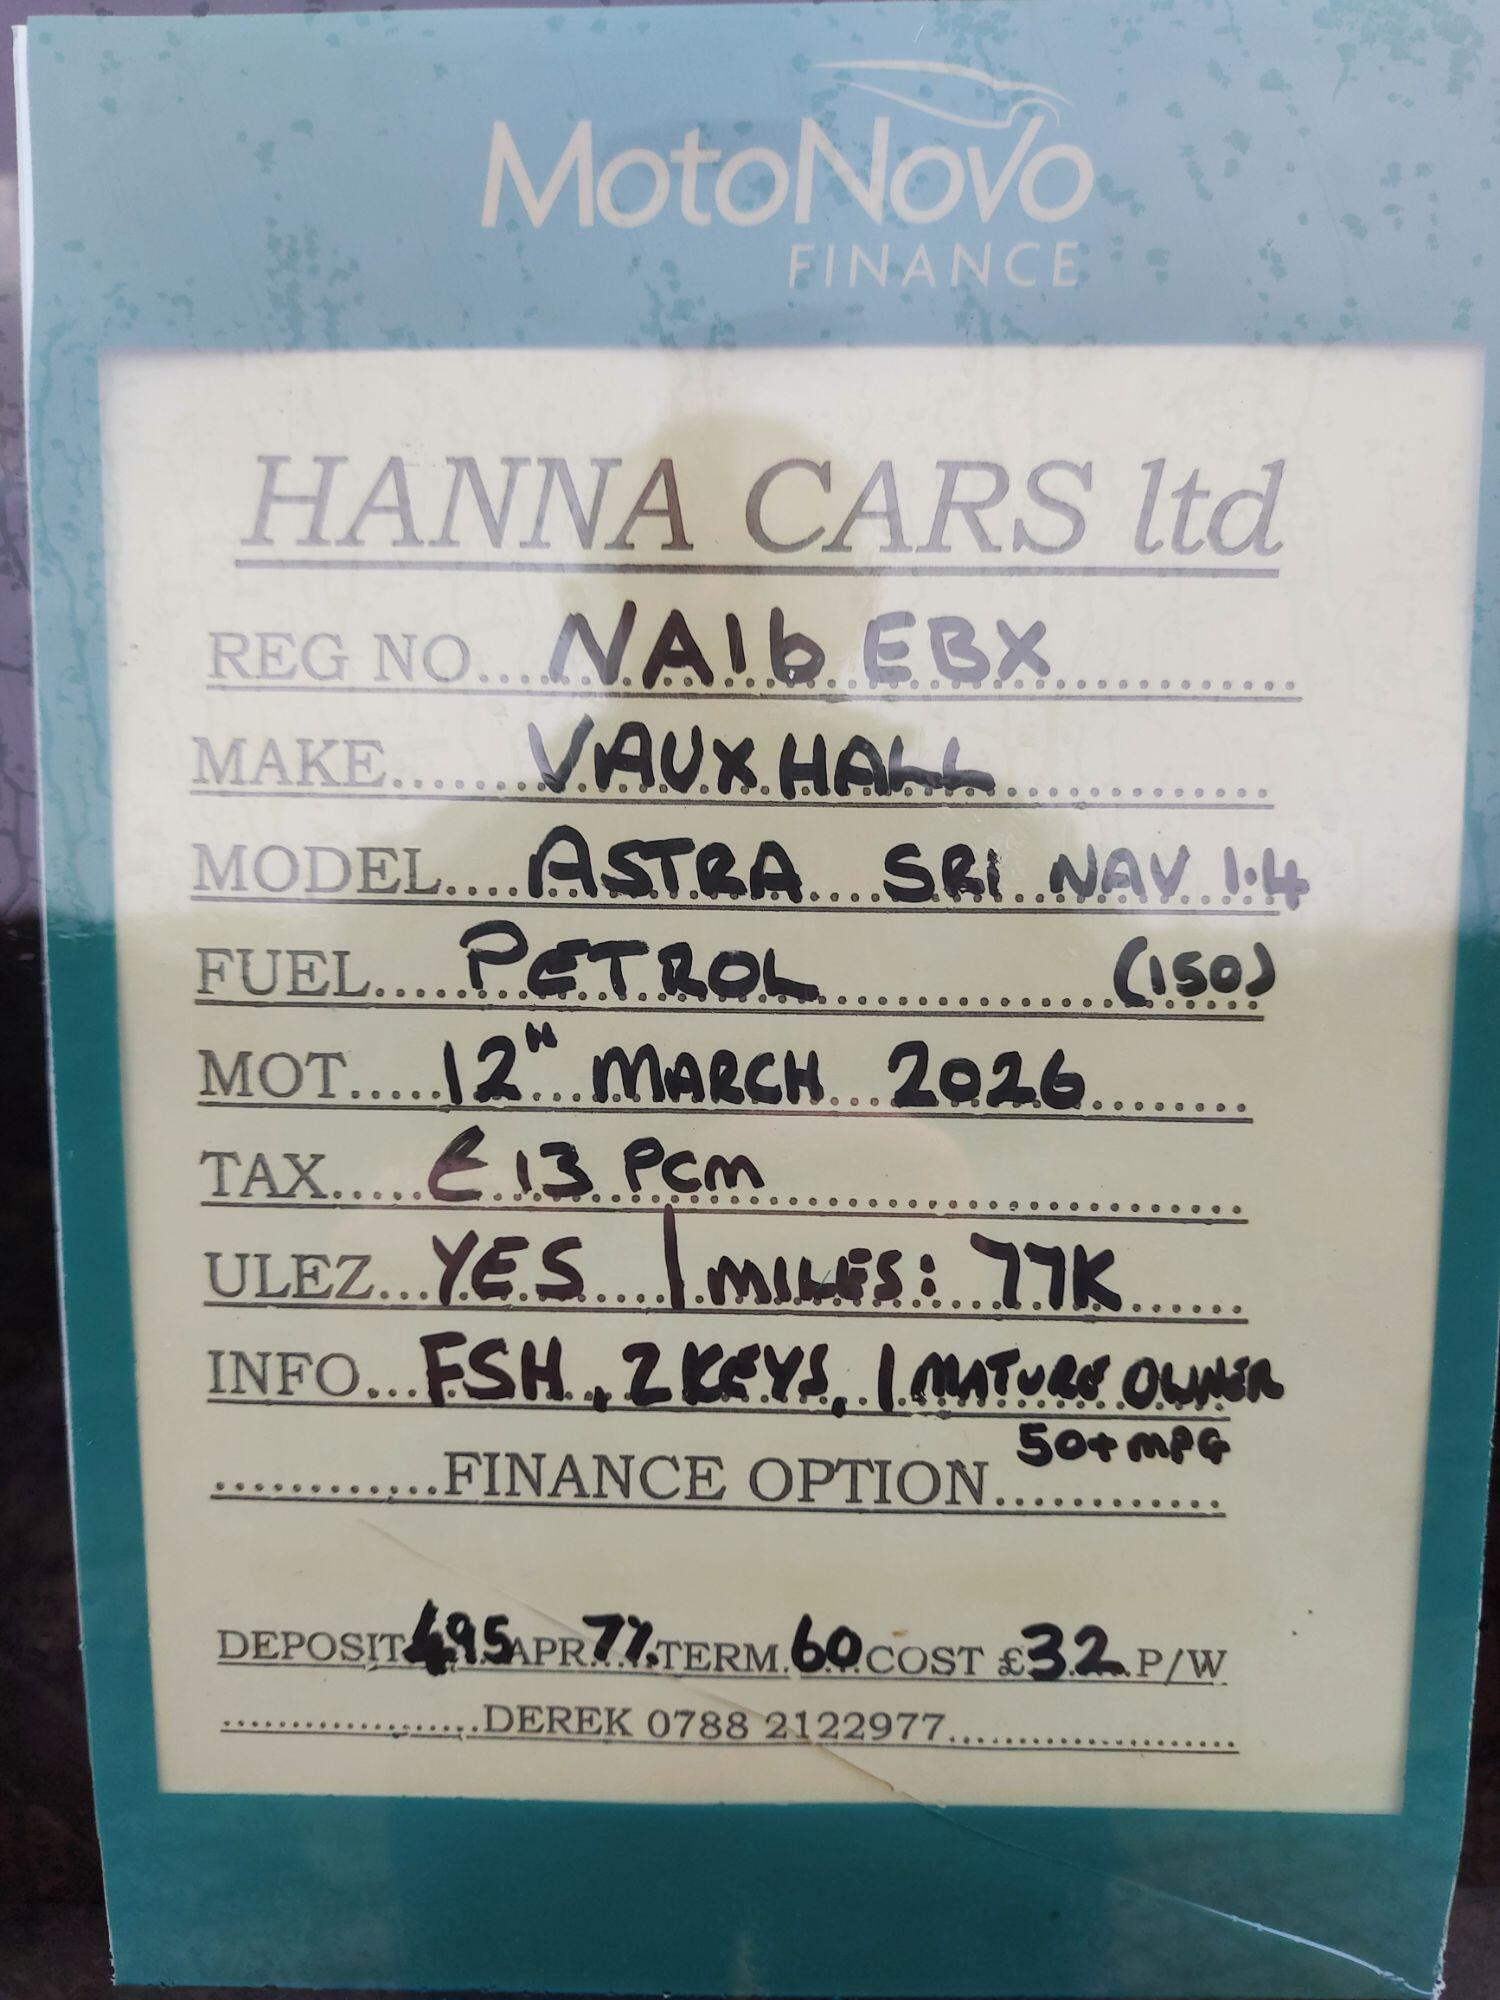 MotoNovo
FINANCE
HANNA CARS ltd
REG NO....NA16 EBX
MAKE....VAUXHALL
MODEL....ASTRA SRI NAV 1.4
FUEL....PETROL (150)
MOT....12TH MARCH 2026
TAX....£13 PCM
ULEZ...YES | MILES: 77K
INFO...FSH, 2 KEYS, 1 MATURE OWNER
50+ MPG
............FINANCE OPTION............
DEPOSIT £495 APR 7% TERM 60 COST £32 P/W
...................DEREK 0788 2122977.....................